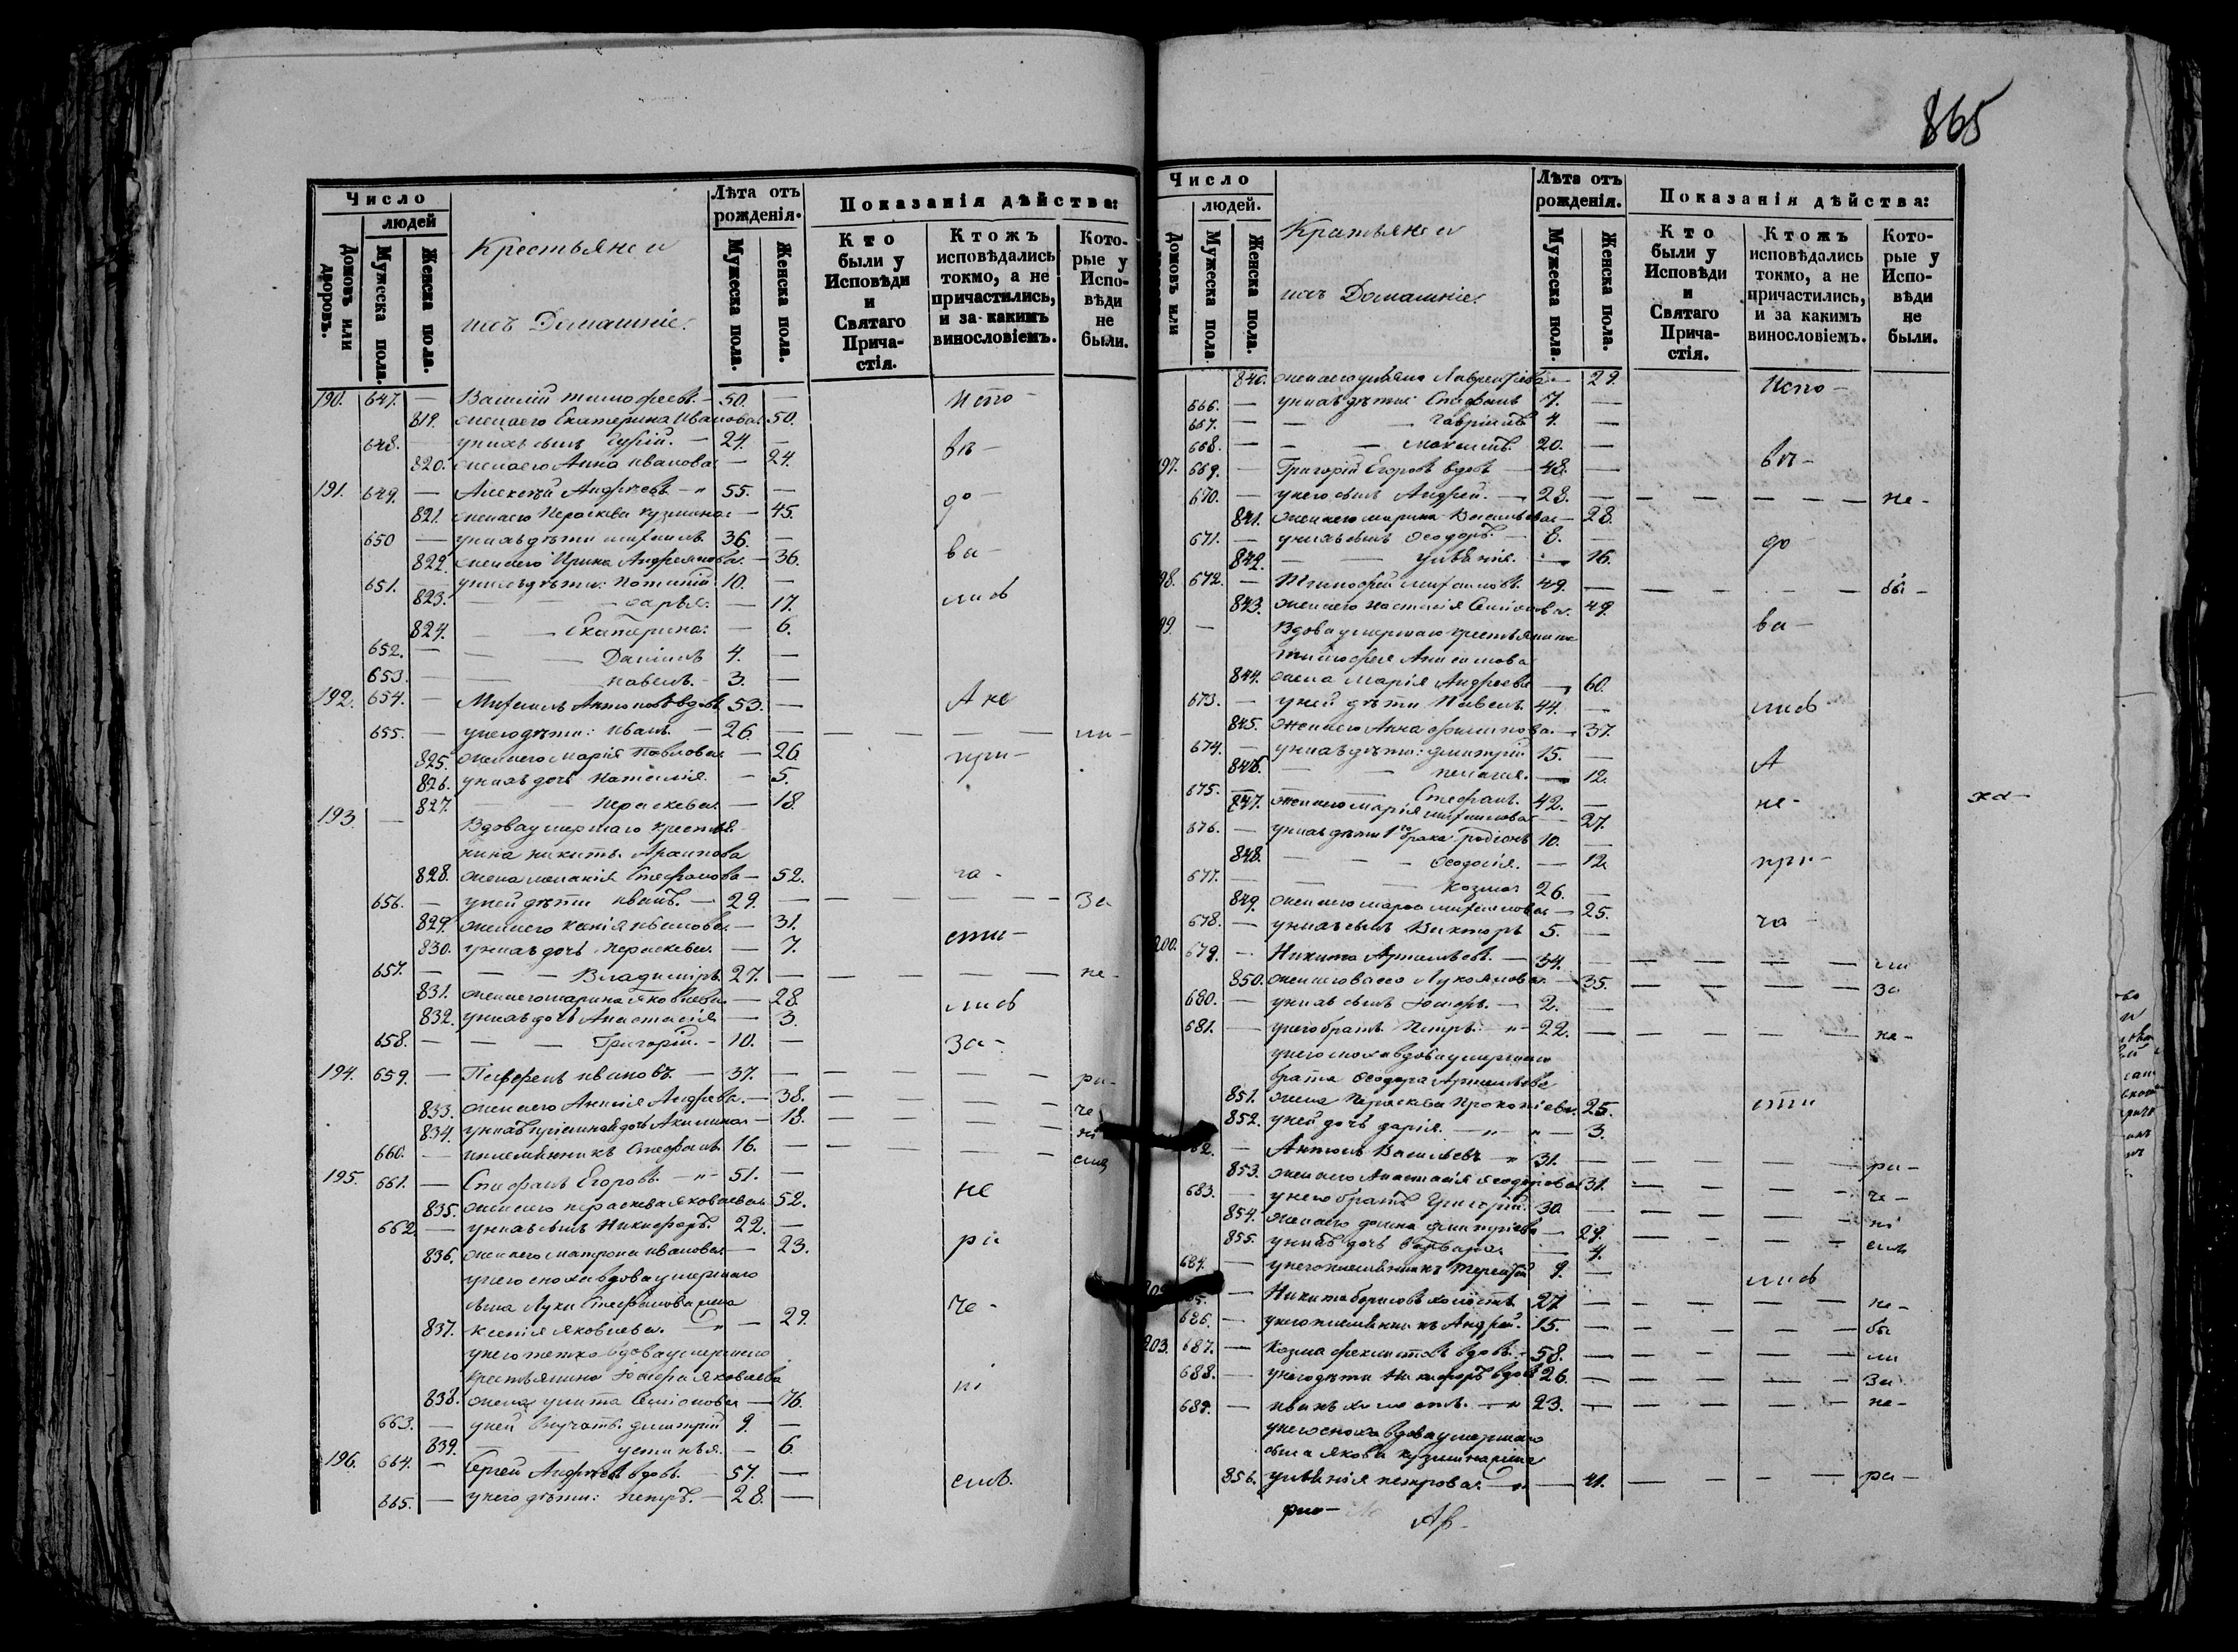 865
Число
людей
Домовъ или дворовъ.
Мужеска пола.
Женска пола.
Крестьяне и
ихъ Домашніе.
Лѣта отъ рожденія.
Мужеска пола.
Женска пола.
Показанія дѣйства:
Кто были у Исповѣди и Святаго Прича- стія.
Ктожъ исповѣдались токмо, а не причастились, и за какимъ винословіемъ.
Кото- рые у Испо- вѣди не были.
190. 647. — Василій Тимофеевъ — 50. — Испо-
819. жена его Екатерина Иванова 50.
648. — у нихъ сынъ — 24. — вѣ-
820. жена его Анна Иванова — 24.
191. 649. — Алексѣй Андреевъ — 55. — до-
821. жена его Параскева Кузмина — 45.
650 — у нихъ дѣти Михаилъ 36. —
822. жена его Ирина Андреянова — 36. ва-
651. — у нихъ дѣти: Потапій 10. —
823. — Дарья — 17. лись
824. — Екатерина — 6.
652. — Даніилъ 4. —
653. — Павелъ 3. —
192. 654. — Михаилъ Антоновъ вдовъ 53. — А не
655. — у него дѣти: Иванъ — 26 — — — — — ли-
825. жена его Марія Павлова — 26 при-
826. у нихъ дочь Наталія — 5.
827. — Параскева — 18.
193. — Вдова умершаго крестья-
нина Никиты Архипова
828. жена Меланія Стефанова — 52. ча-
656. — у ней дѣти Иванъ — 29. — — — — — За
829. жена его Ксенія Иванова — 31.
830. у нихъ дочь Параскева — 7. сти-
657. — — — Владиміръ 27. — — — — — не-
831. жена его Марина Яковлева — 28.
832. у нихъ дочь Анастасія — 3. лись
658. — — — Григорій — 10. — За-
194. 659. — Парфенъ Ивановъ — 37. — — — — — ра-
833. жена его Андреева — 38. — — — — че
834. у нихъ дочь Акилина — 18. — — — — ні
660. — племянникъ Стефанъ 16. — — — — — емъ
195. 661. — Стефанъ Егоровъ — 51. —
835. жена его Параскева Яковлева 52. не
662. — у нихъ сынъ Никифоръ 22. —
836. жена его Матрона Иванова — 23. ра
у него сноха вдова умершаго
сына Луки Стефанова жена
837. Ксенія Яковлева — 29. че-
у него тетка вдова умершаго
крестьянина Іосифа Яковлева
838. жена Улита Семіонова — 76. ні
663. — у ней внучатъ Димитрій 9. —
839. — Устинья — 6
196. 664. — Сергей Андреевъ вдовъ 57. —
665. — у него дѣти: Петръ — 28. — емъ.
Число
людей.
Домовъ или
Мужеска пола
Женска пола.
Крестьяне и
ихъ Домашніе.
Лѣта отъ рожденія.
Мужеска пола.
Женска пола.
Показанія дѣйства:
Кто были у Исповѣди и Святаго Прича- стія.
Ктожъ исповѣдались токмо, а не причастились, и за какимъ винословіемъ.
Кото- рые у Испо- вѣди не были.
840. жена его Ульяна Лаврентьева — 29. Испо-
666. — у нихъ дѣти: Стефанъ 7. —
667. — — Гавріилъ 4. —
668. — — Максимъ 20. —
97. 669. — Григорій Егоровъ вдовъ — 48. — вѣ-
670. — у него сынъ Андрей — 28. — — — — — не-
841. жена его Марина Васильева — 28.
671. — у нихъ сынъ Ѳеодоръ — 8. — до
842. — Ульянія — 16.
98. 672. — Тимофей Михаиловъ 49. — — — — — бы-
843. жена его Настасія Семіонова 49.
99. — Вдова умершаго крестьянина ва-
Тимофея Анисимова
844. жена Марія Андреева — 60.
673. — у ней дѣти Павелъ 44. — лись
845. жена его Анна Филипова — 37.
674. — у нихъ дѣти: Димитрій 15. —
846. — Пелагія — 12. А
675. — — Стефанъ 42. —
847. жена его Марія Михаилова — 27. не-
676. — у нихъ дѣти 1го брака Родіонъ 10. —
848. — — Ѳеодосія — 12 при-
677. — — Козма 26. —
849. жена его Марѳа Михаилова — 25.
678. — у нихъ сынъ Викторъ 5. — ча
200. 679. — Никита Артемьевъ — 34. — — — — — ли
850. жена его Васса Лукоянова — 35. — — — — За
680. — у нихъ сынъ Іосифъ — 2. —
681. — у него братъ Петръ — 22. — — — — — не-
у него сноха вдова умершаго
брата Ѳеодора Артемьева
851. жена Параскева Прокопіева 25. сти
852. у ней дочь Дарія — 3.
82. — Антонъ Васильевъ 31. — — — — — ра-
853. жена его Анастасія Ѳеодорова 31. — — — — че-
683. — у него братъ Григорій 30. — — — — — ні
854. жена его Домна Димитріева — 29. — — — — емъ
855. у нихъ дочь Варвара — 4.
684. — у него племянникъ Терентій 9. — лись
85. — Никита Борисовъ холостъ 27 — — — — — не-
686. — у него племянникъ Андрей 15. — — — — — бы
203. 687. — Козма вдовъ 58. — — — — — ли
688. — у него дѣти Никифоръ вдовъ 26. — — — — — За
689. — Иванъ холостъ — 23. — — — — — не-
у него сноха вдова умершаго
сына Якова Кузмина жена
856. Ульянія Петрова — 41. — — — — ра-